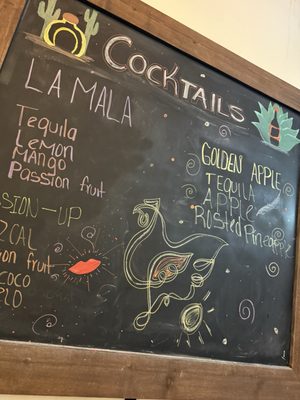 COCKTAILS
LA MALA
Tequila
Lemon
Mango
Passion fruit
SSION-UP
ZCAL
ion fruit
coco
ELD
GOLDEN APPLE
TEQUILA
APPLE
Rosted Pineapple